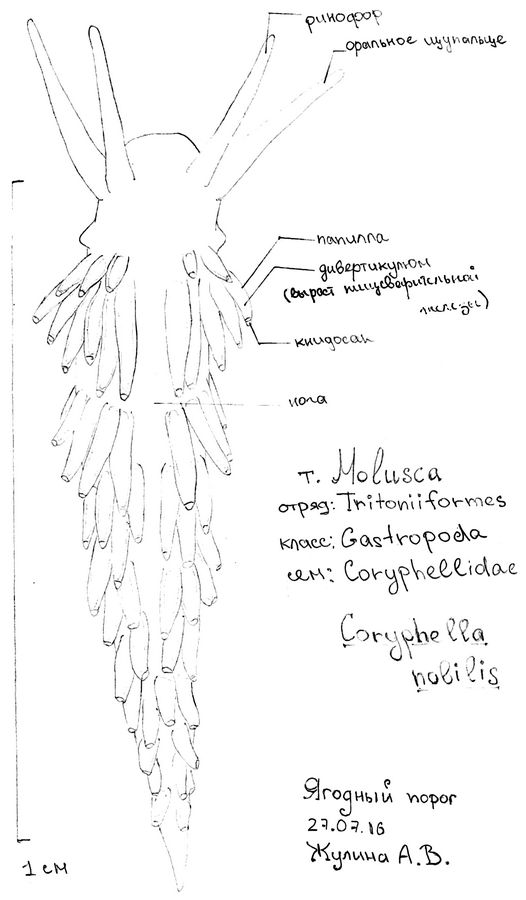 ринофор
оральное щупальце
папилла
дивертикулюм
(вырост пищеварительной
железы)
книдосак
нога
т. Molusca
отряд: Tritoniiformes
класс: Gastropoda
сем: Coryphellidae
Coryphella
nobilis
Ягодный порог
27.07.16
Жулина А.В.
1 см